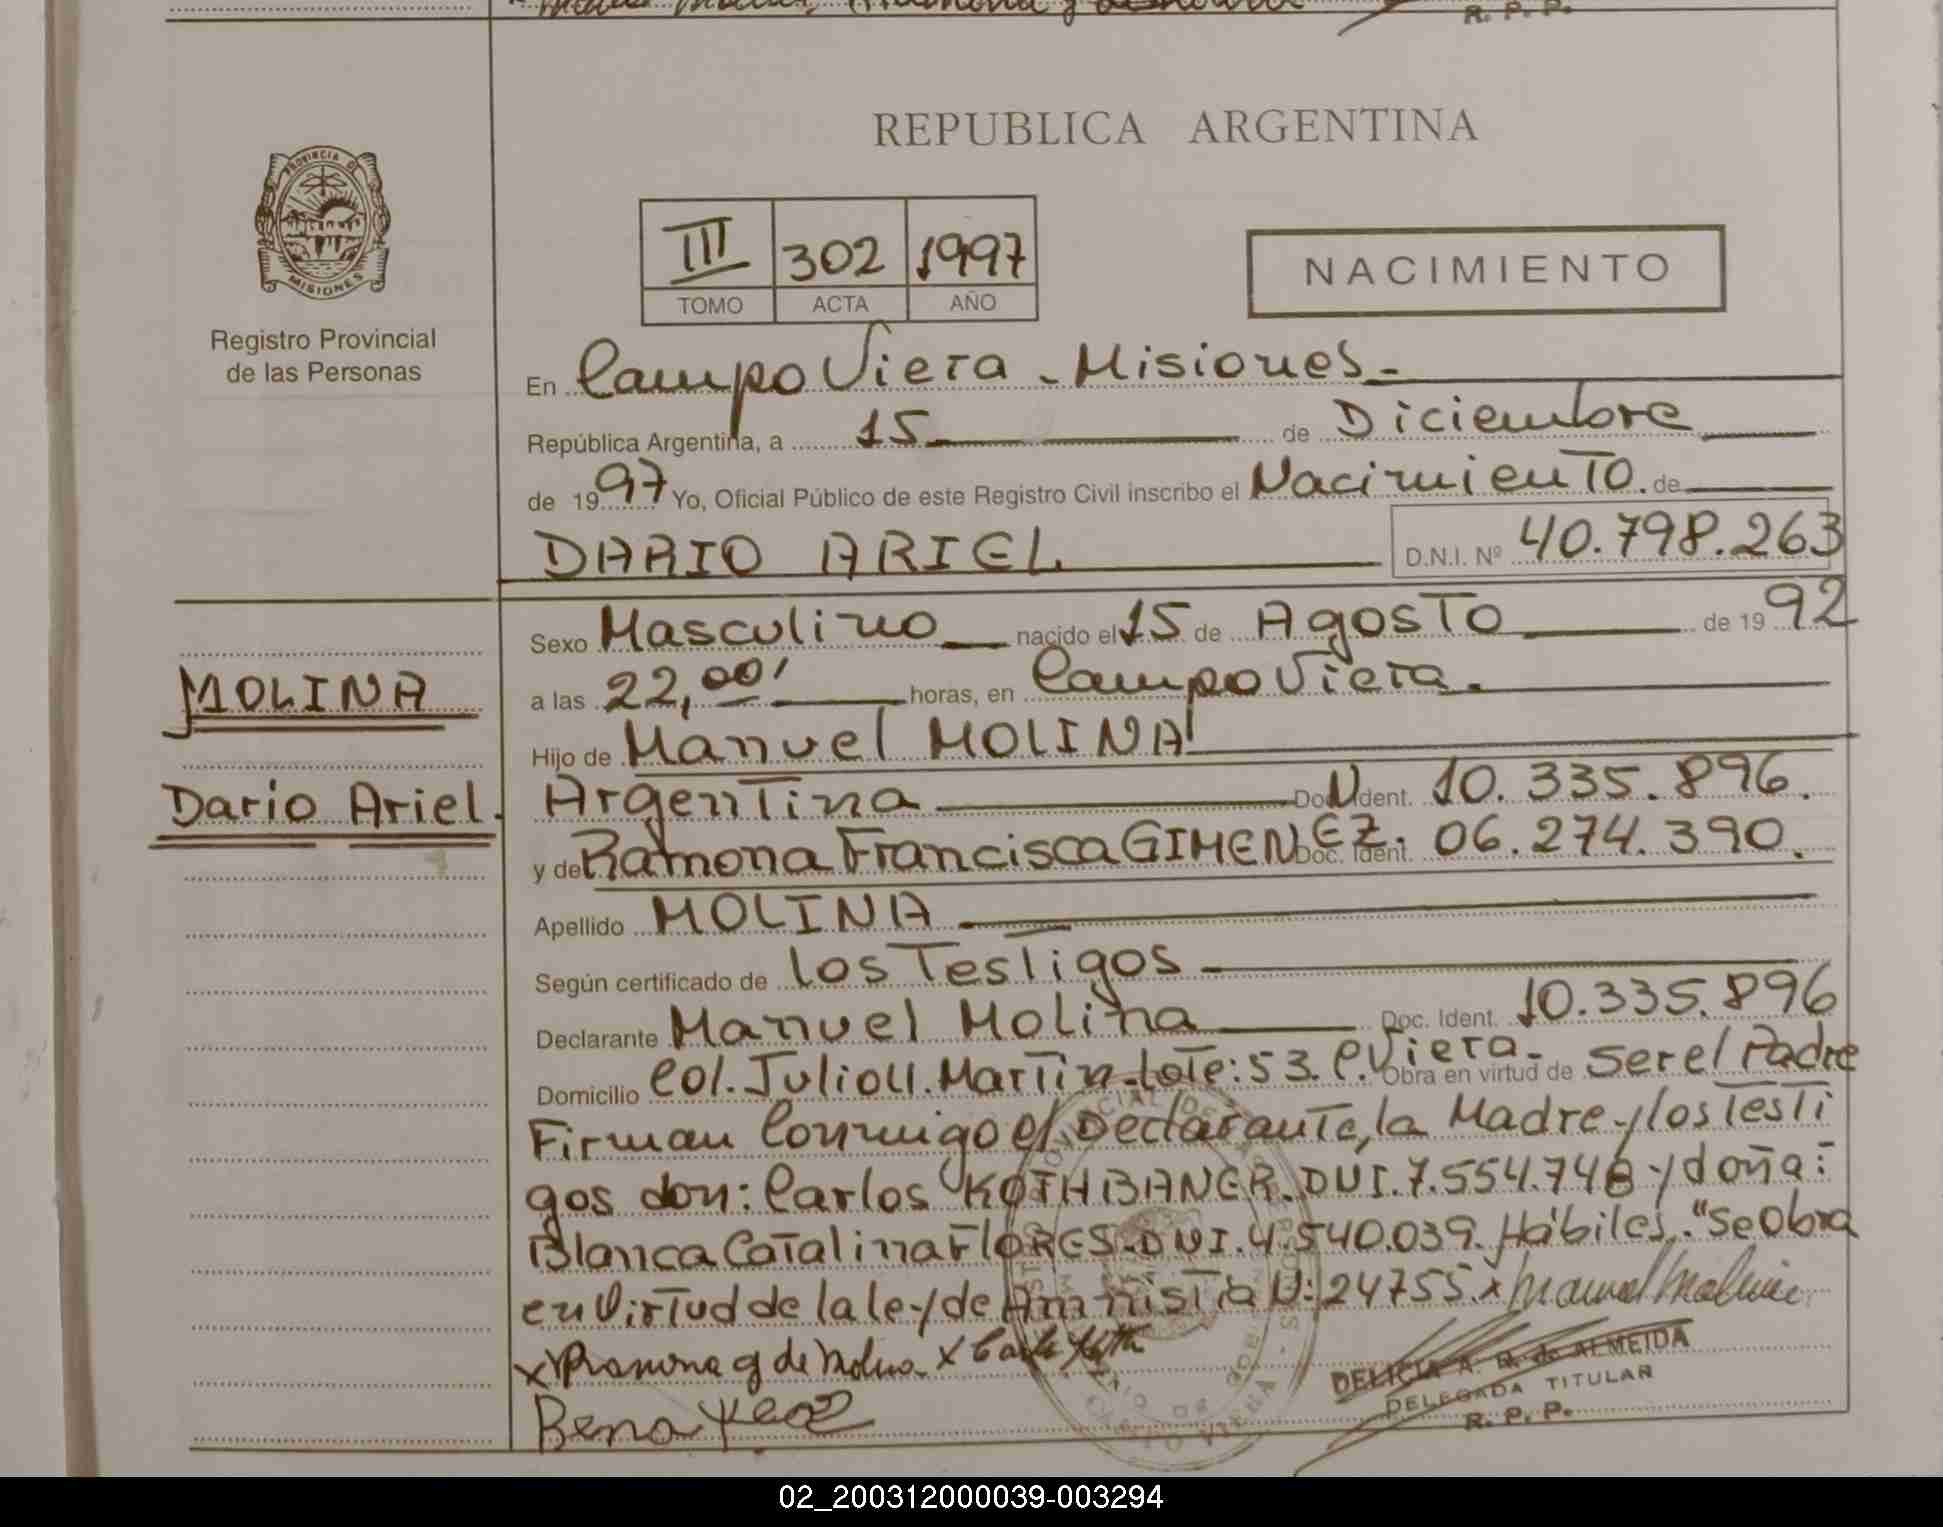 R. P. P.
PROVINCIA DE
MISIONES
Registro Provincial
de las Personas
REPUBLICA ARGENTINA
III 302 1997
TOMO ACTA AÑO
NACIMIENTO
En Campo Viera - Misiones -
República Argentina, a 15 de Diciembre
de 1997 Yo, Oficial Público de este Registro Civil inscribo el Nacimiento. de
DARIO ARIEL D.N.I. Nº 40.798.263
Sexo Masculino nacido el 15 de Agosto de 1992
a las 22,00' horas, en Campo Viera.
MOLINA
Hijo de Manuel MOLINA
Dario Ariel.
Argentina Doc. Ident. 10.335.896.
y de Ramona Francisca GIMENEZ. Doc. Ident. 06.274.390.
Apellido MOLINA
Según certificado de los Testigos
Declarante Manuel Molina Doc. Ident. 10.335.896
Domicilio Col. Julio U. Martin-Lote: 53. C. Viera - Obra en virtud de ser el Padre
Firman Conmigo el Declarante, la Madre y los Testi
gos don: Carlos KOTHBANER. DNI. 7.554.748 y doña:
Blanca Catalina FLORES. DNI. 4.540.039. Hábiles. "Se Obra
en Virtud de la ley de Amnistia N: 24755. x Manuel Molina
x Ramona g de Molina x
DELICIA A. R. de ALMEIDA
DELEGADA TITULAR
R. P. P.
02_200312000039-003294